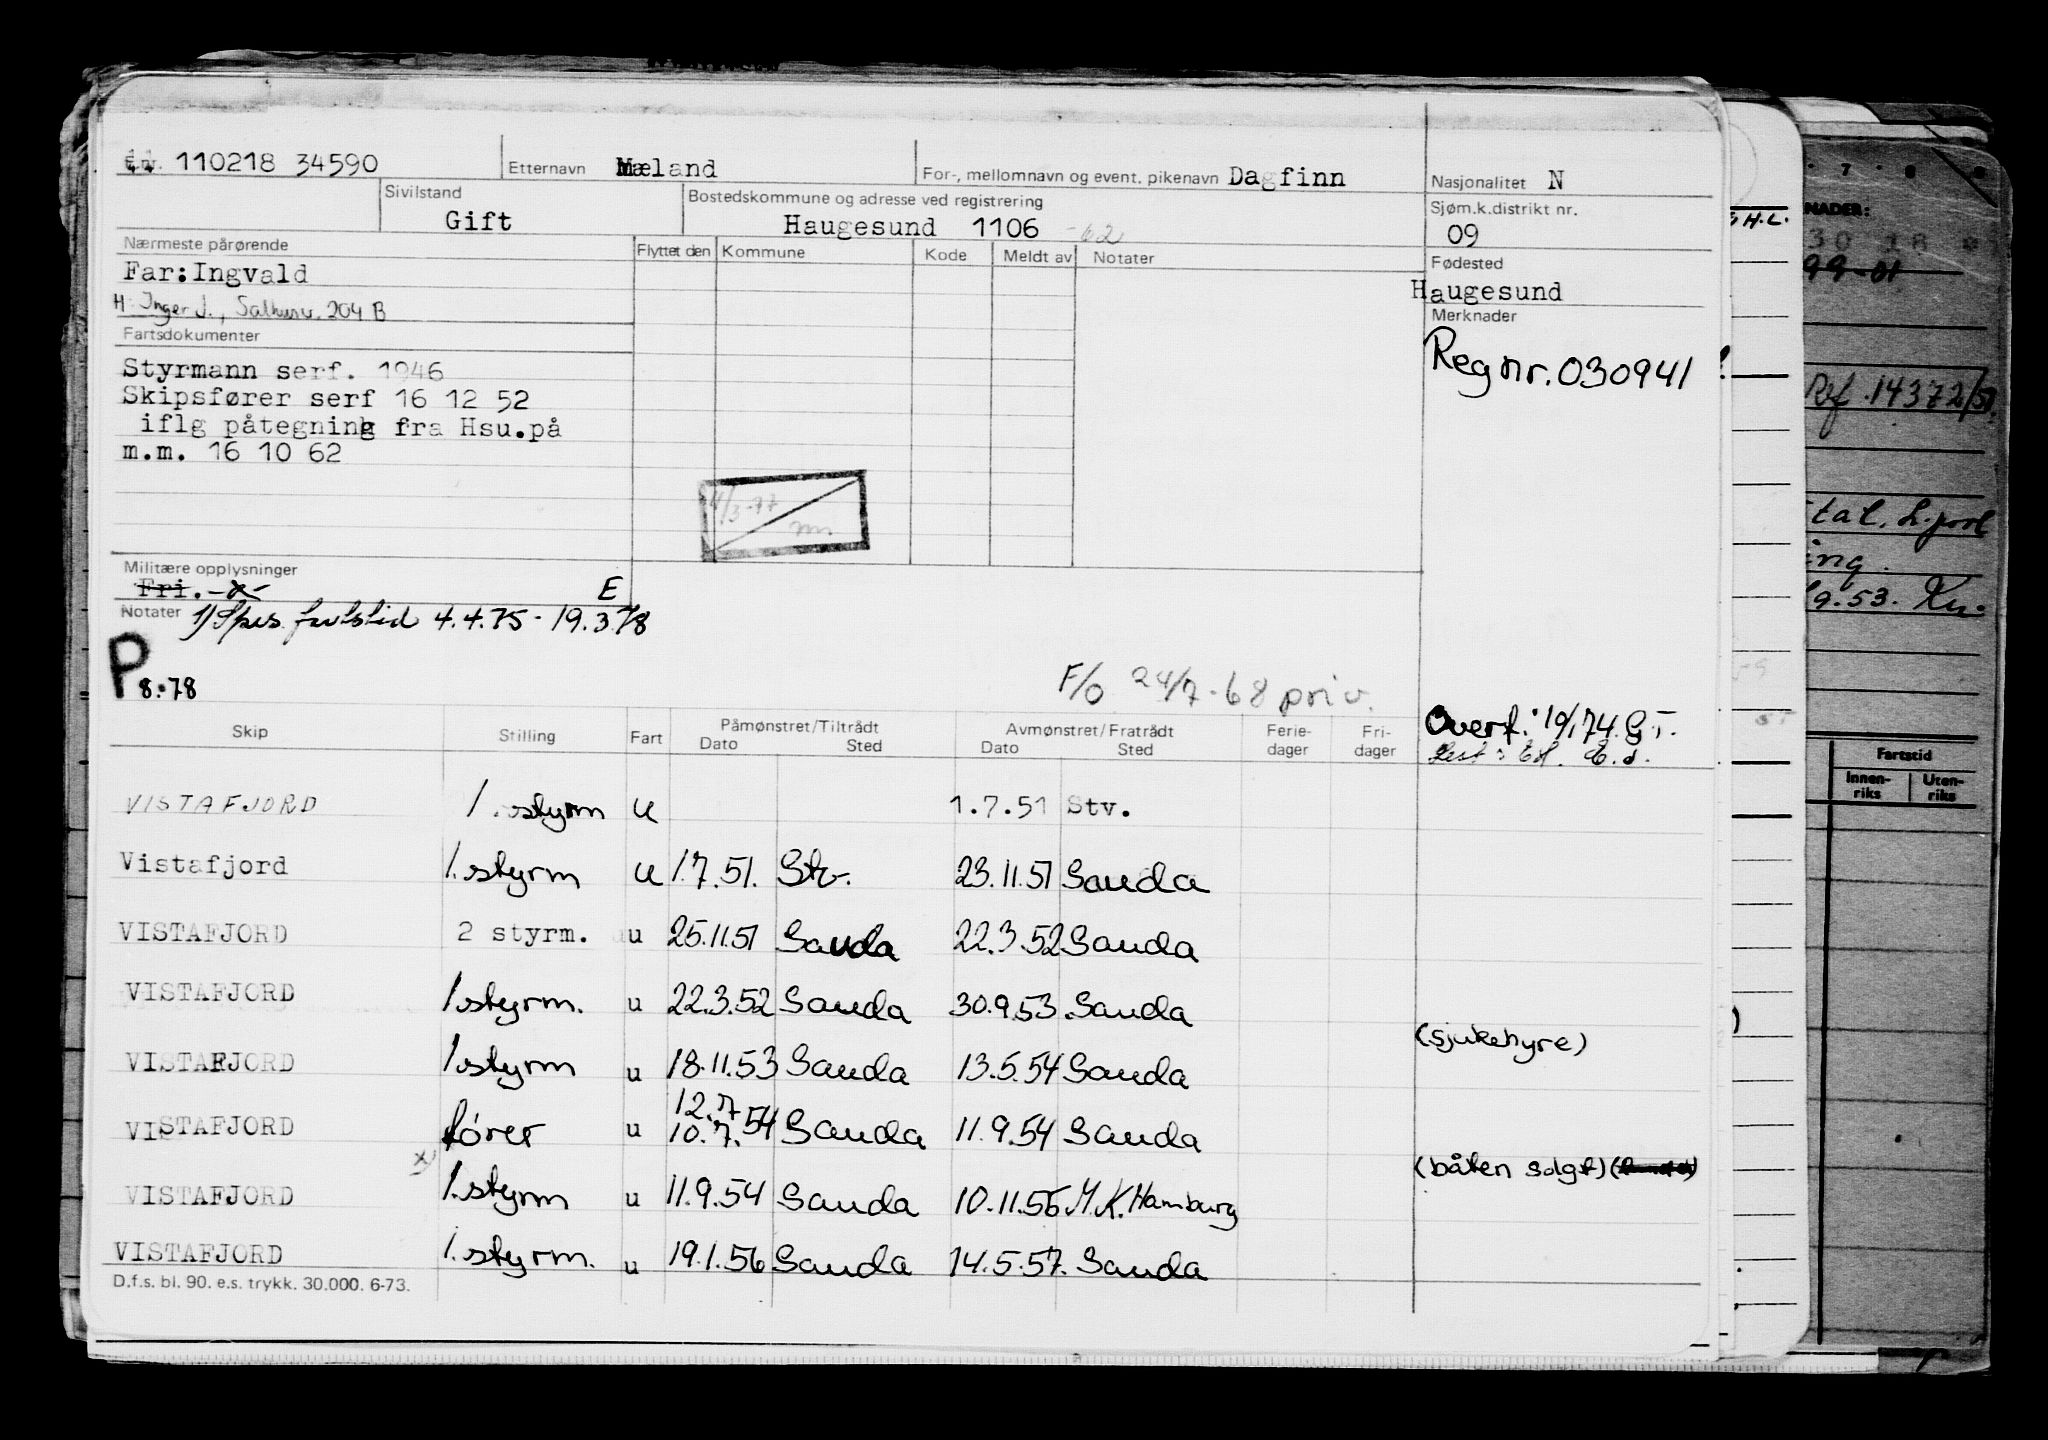 110218 34590 Etternavn Mæland For-, mellomnavn og event. pikenavn Dagfinn Nasjonalitet N
Sivilstand Gift Bostedskommune og adresse ved registrering Haugesund 1106 -62 Sjøm.k.distrikt nr. 09
Nærmeste pårørende Flyttet den Kommune Kode Meldt av Notater Fødested
Far:Ingvald Haugesund
H: Inger J., Salhusv. 204 B Merknader
Fartsdokumenter Regnr. 030941
Styrmann serf. 1946
Skipsfører serf 16 12 52
iflg påtegning fra Hsu.på
m.m. 16 10 62
Militære opplysninger
Fri. -x- E
Notater 1) Spes. fartstid 4.4.75 - 19.3.78
P 8.78
F/O 24/7-68 priv.
Overf.: 10/174 G.T.
Skip Stilling Fart Påmønstret/Tiltrådt Dato Sted Avmønstret/Fratrådt Dato Sted Ferie-dager Fri-dager
VISTAFJORD 1. styrm u 1.7.51 Stv.
Vistafjord 1. styrm u 1.7.51. Stv. 23.11.51 Sauda
VISTAFJORD 2 styrm. u 25.11.51 Sauda 22.3.52 Sauda
VISTAFJORD 1. styrm. u 22.3.52 Sauda 30.9.53. Sauda (sjukehyre)
VISTAFJORD 1. styrm u 18.11.53 Sauda 13.5.54 Sauda
VISTAFJORD fører u 12.7 10.7. 54 Sauda 11.9.54 Sauda
VISTAFJORD x) 1. styrm u 11.9.54 Sauda 10.11.56 M.K. Hamburg (båten solgt)
VISTAFJORD 1. styrm. u 19.1.56 Sauda 14.5.57. Sauda
D.f.s. bl. 90. e.s. trykk. 30.000. 6-73.
H.L.
99-01
Ref. 14372/51.
9.53.
Fartstid
Innen-riks Uten-riks